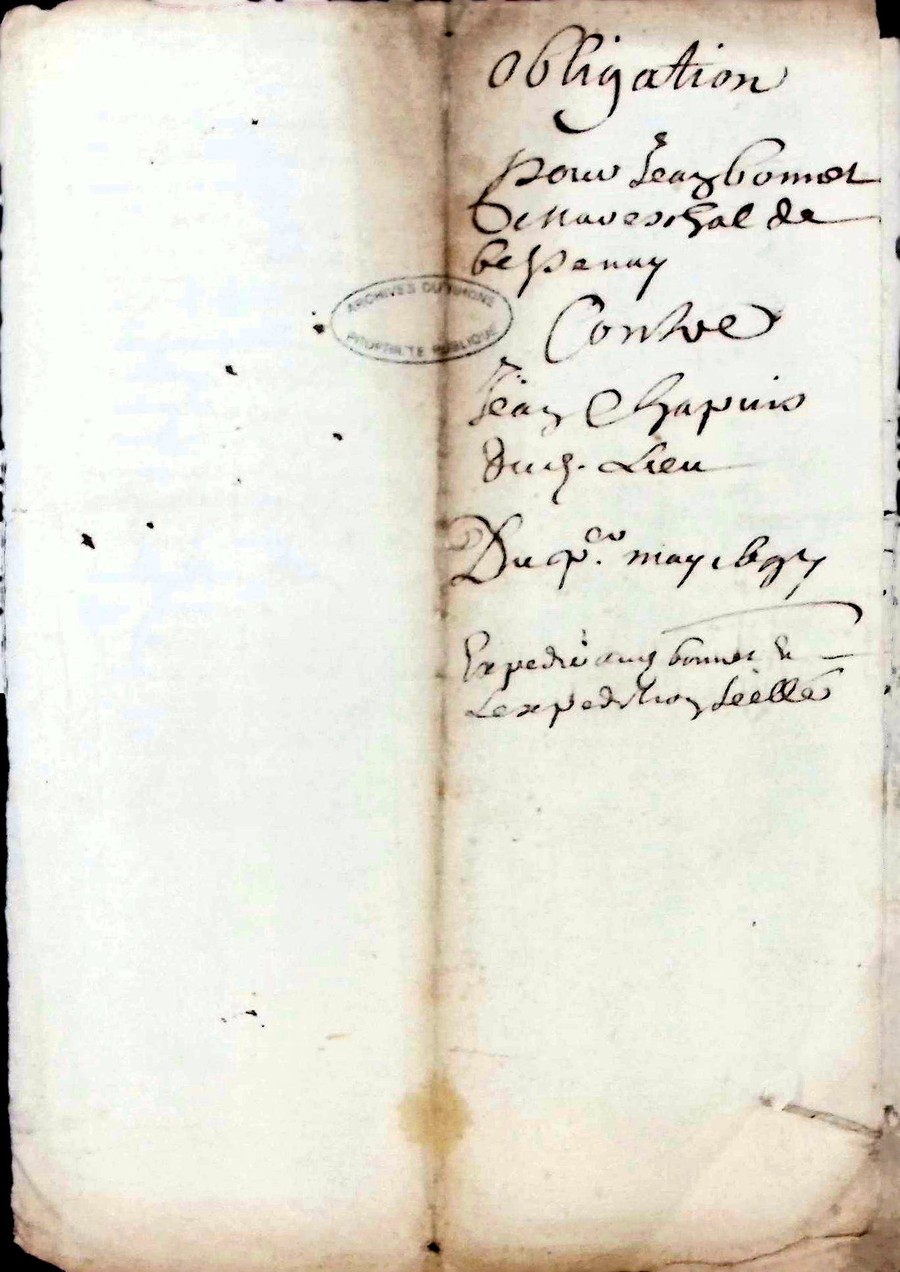 Obligation
pour Jean bonnet
Mareschal de
bessenay
ARCHIVES DU RHONE
PROPRIETE PUBLIQUE
Contre
Jean Chapuis
dud. Lieu
Du pr. may 1697
Expedié aud bonnet &
Lexpedition séellé